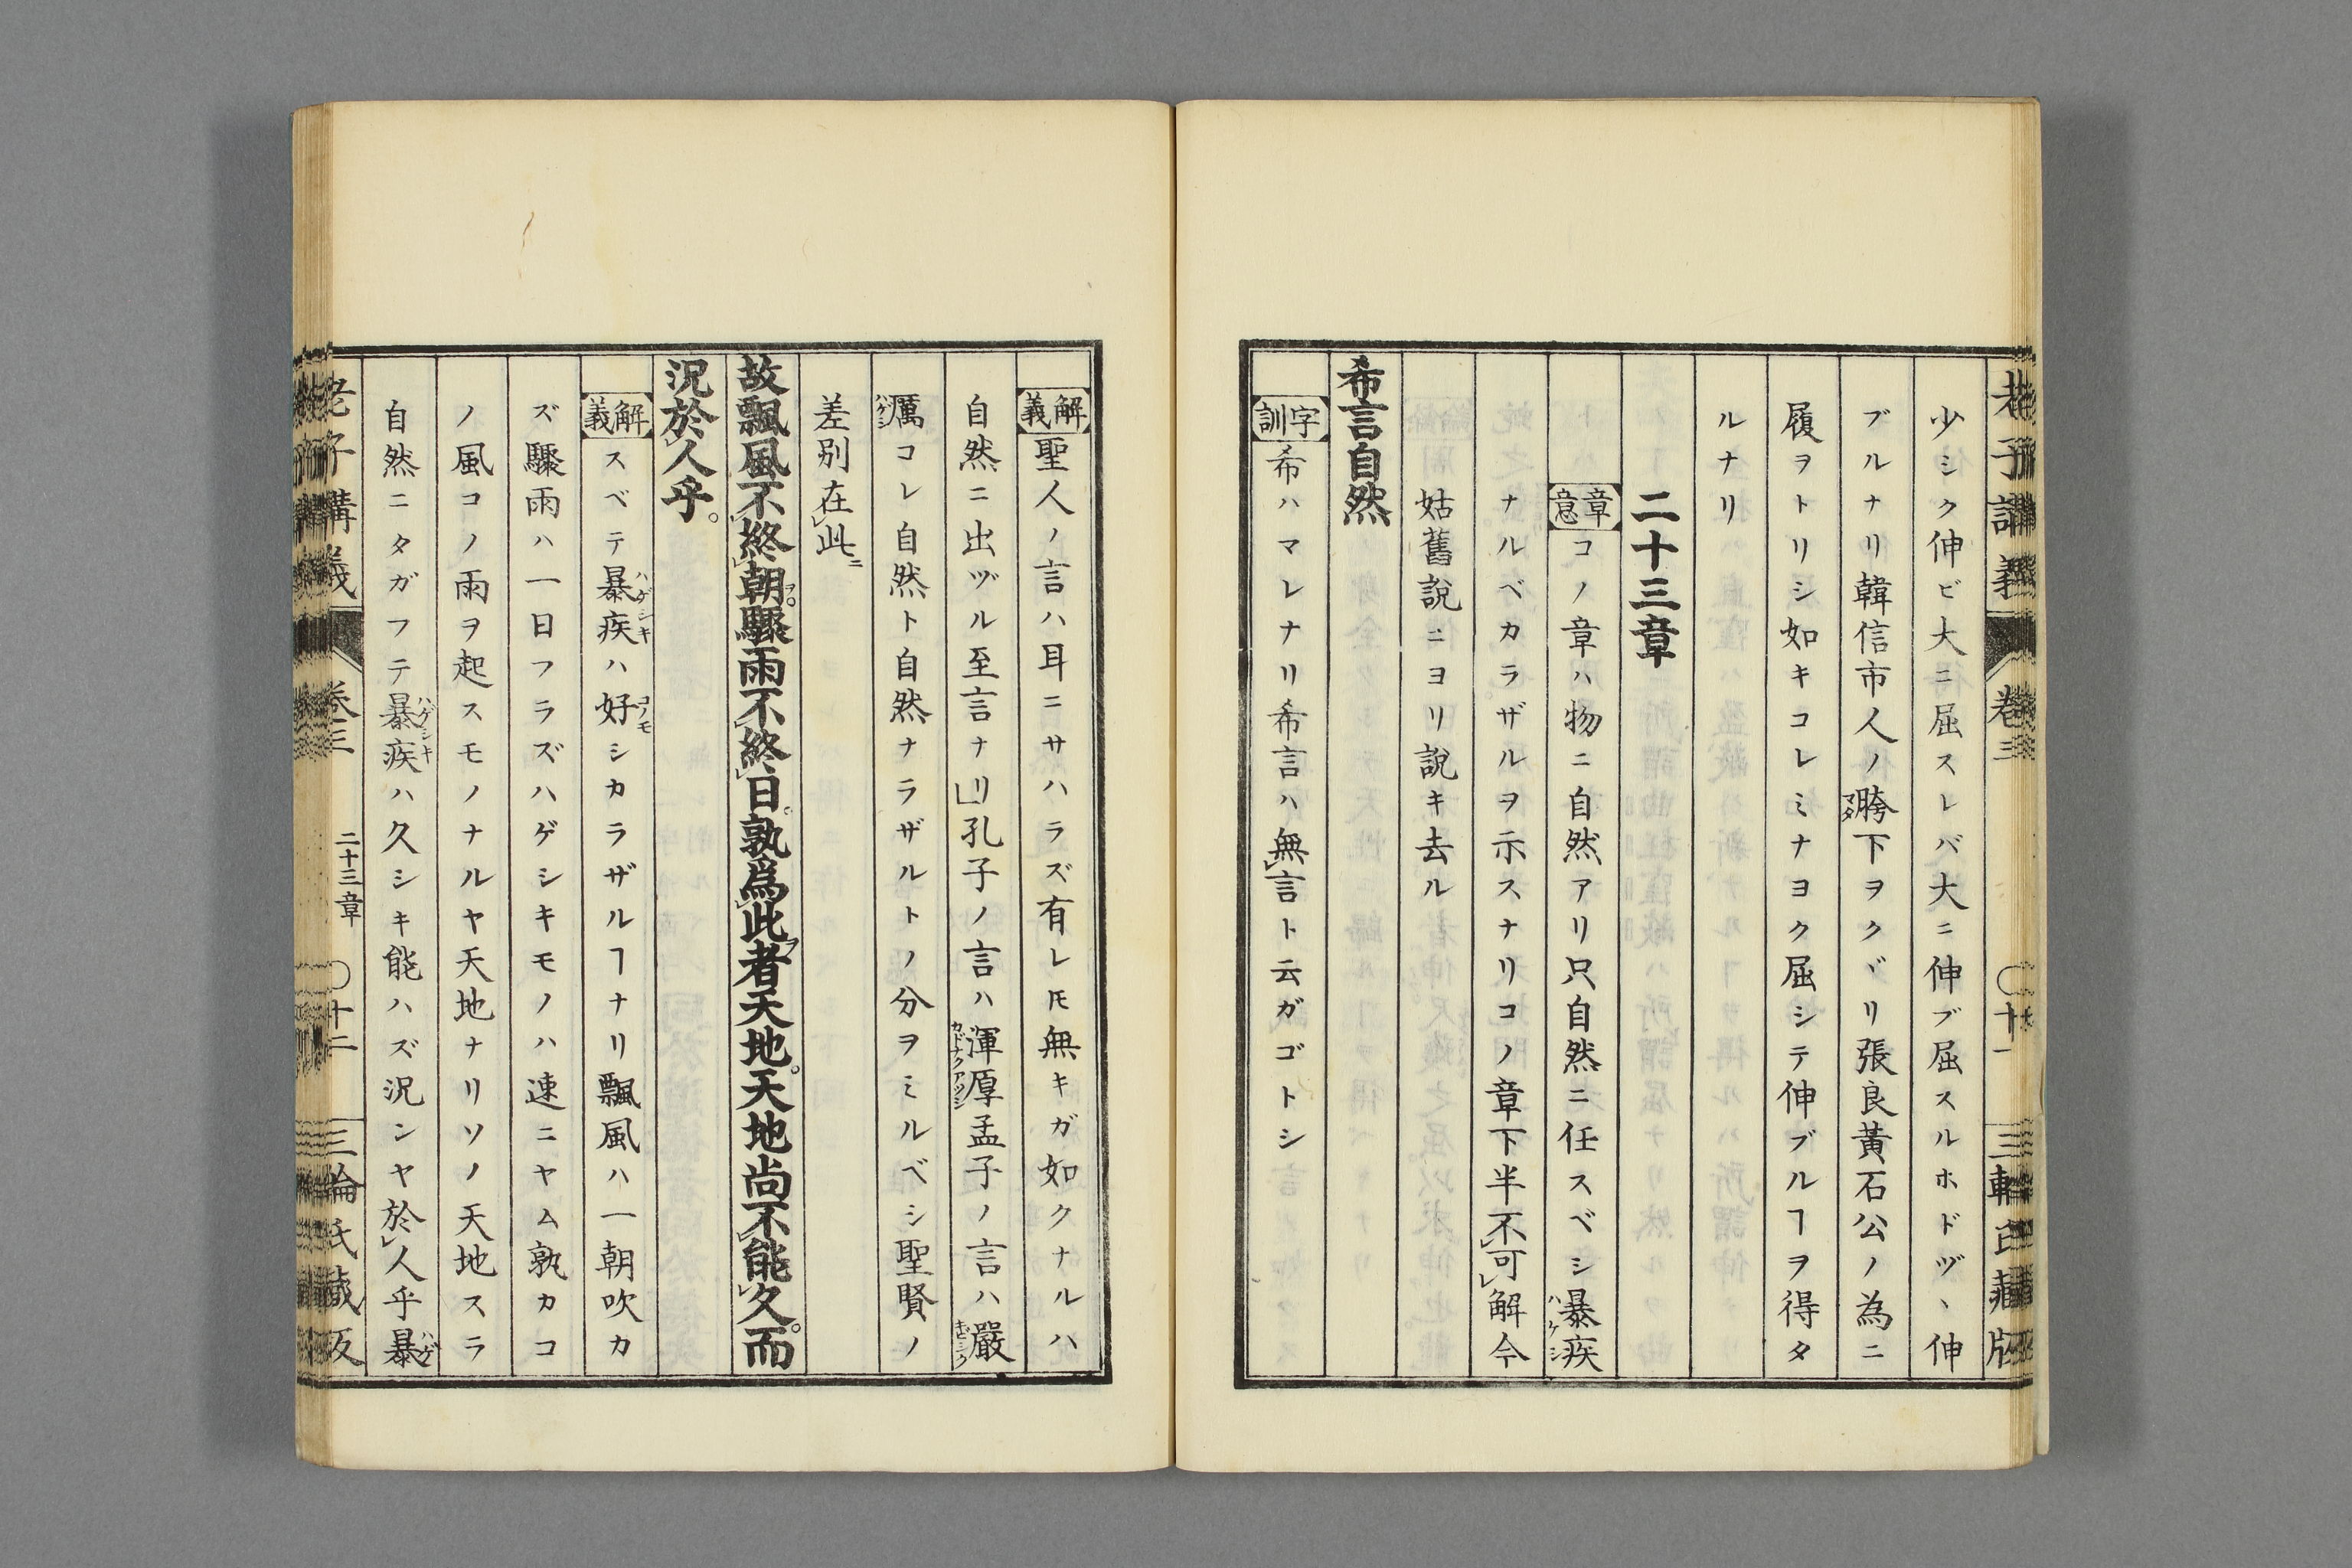 少シク伸ビ大ニ屈スレバ大ニ伸ブ屈スルホドヅヽ伸
ブルナリ韓信市人ノ胯下ヲクヾリ張良黃石公ノ為ニ
履ヲトリシ如キコレミナヨク屈シテ伸ブルヿヲ得タ
ルナリ
二十三章
章意 コノ章ハ物ニ自然アリ只自然ニ任スベシ暴疾ハゲシ
ナルベカラザルヲ示スナリコノ章下半不可解今
姑舊説ニヨリ説キ去ル
希言自然
字訓 希ハマレナリ希言ハ無言ト云ガゴトシ
解義 聖人ノ言ハ耳ニサハラズ有レ𪜈無キガ如クナルハ
自然ニ出ヅル至言ナリ」孔子ノ言ハ渾厚カドナクアツシ孟子ノ言ハ嚴
厲コレ自然ト自然ナラザルトノ分ヲミルベシ聖賢ノ
差別在此ニ
故飄風不終朝ヲ。驟雨不終日。孰爲此ヲ者天地。天地尚不能久。而
況於人乎。
解義 スベテ暴疾ハゲシキハ好コノモシカラザルヿナリ飄風ハ一朝吹カ
ズ驟雨ハ一日フラズハゲシキモノハ速ニヤム孰カコ
ノ風コノ雨ヲ起スモノナルヤ天地ナリソノ天地スラ
自然ニタガフテ暴疾ハゲシキハ久シキ能ハズ況ンヤ於人乎暴ハゲ
老子講義 卷三 二十三章 〇十二 三輪氏藏版